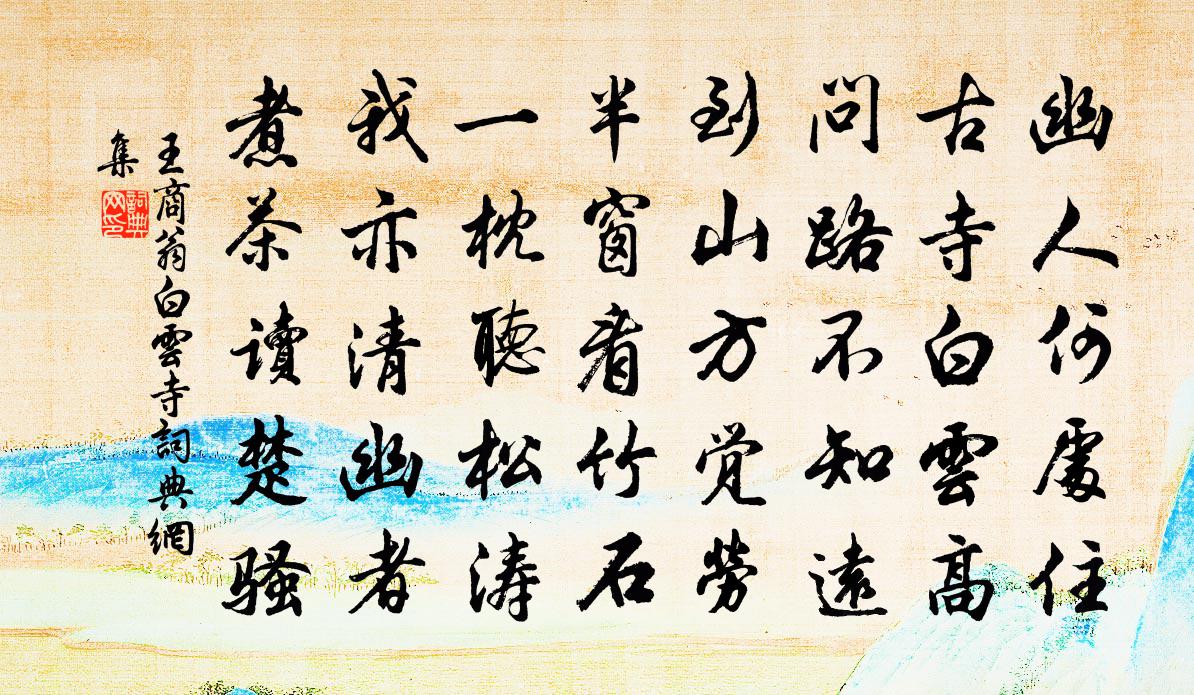 幽人何處住
古寺白雲高
問路不知遠
到山方覺勞
半窗看竹石
一枕聽松濤
我亦清幽者
煮茶讀楚騷
王商翁白雲寺詞典網
集
詞典
网印